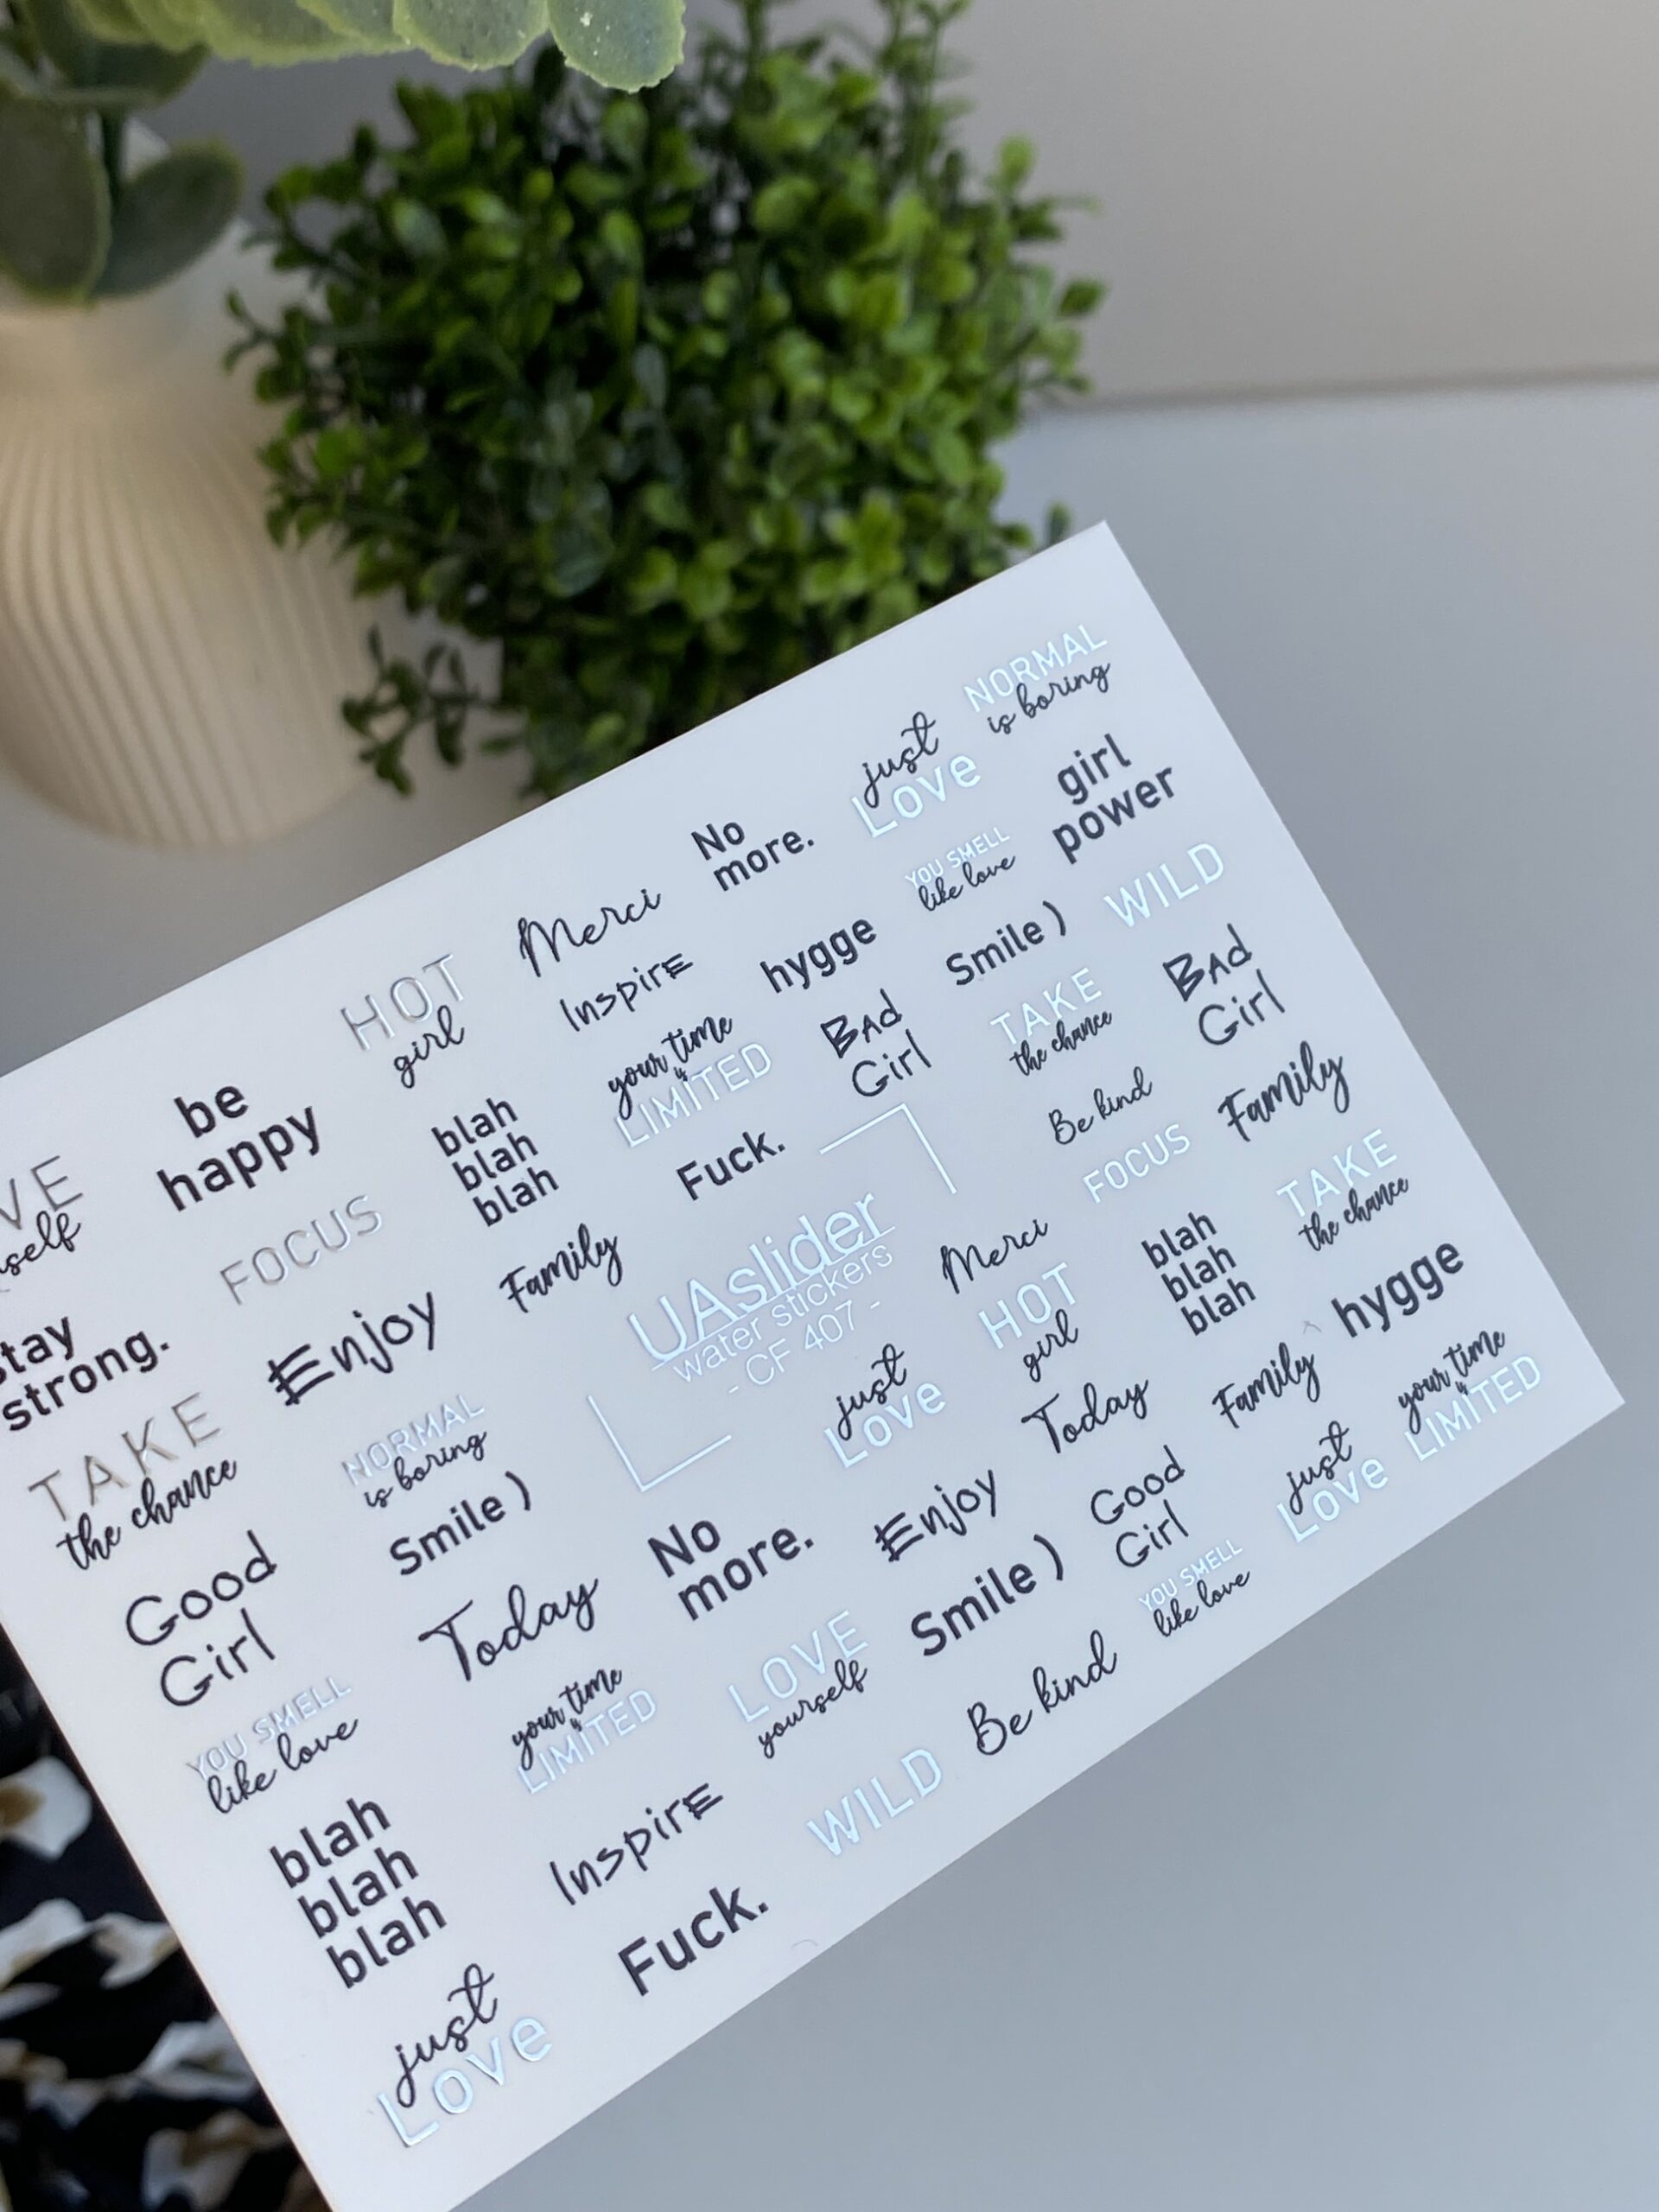 NORMAL
is boring
just
Love
girl
power
No
more.
YOU SMELL
like love
WILD
Merci
hygge
Smile )
BAd
Girl
HOT
girl
InspirE
TAKE
the chance
your time
is
LIMITED
BAd
Girl
Be kind
Family
be
happy
blah
blah
blah
Fuck.
FOCUS
TAKE
the chance
VE
self
FOCUS
Family
UAslider
water stickers
- CF 407 -
Merci
blah
blah
blah
hygge
stay
strong.
Enjoy
HOT
girl
your time
is
LIMITED
TAKE
the chance
NORMAL
is boring
just
Love
Today
Family
Smile )
No
more.
Enjoy
Good
Girl
just
Love
Good
Girl
Today
Smile )
YOU SMELL
like love
YOU SMELL
like love
your time
is
LIMITED
LOVE
yourself
Be kind
blah
blah
blah
InspirE
WILD
Fuck.
just
Love